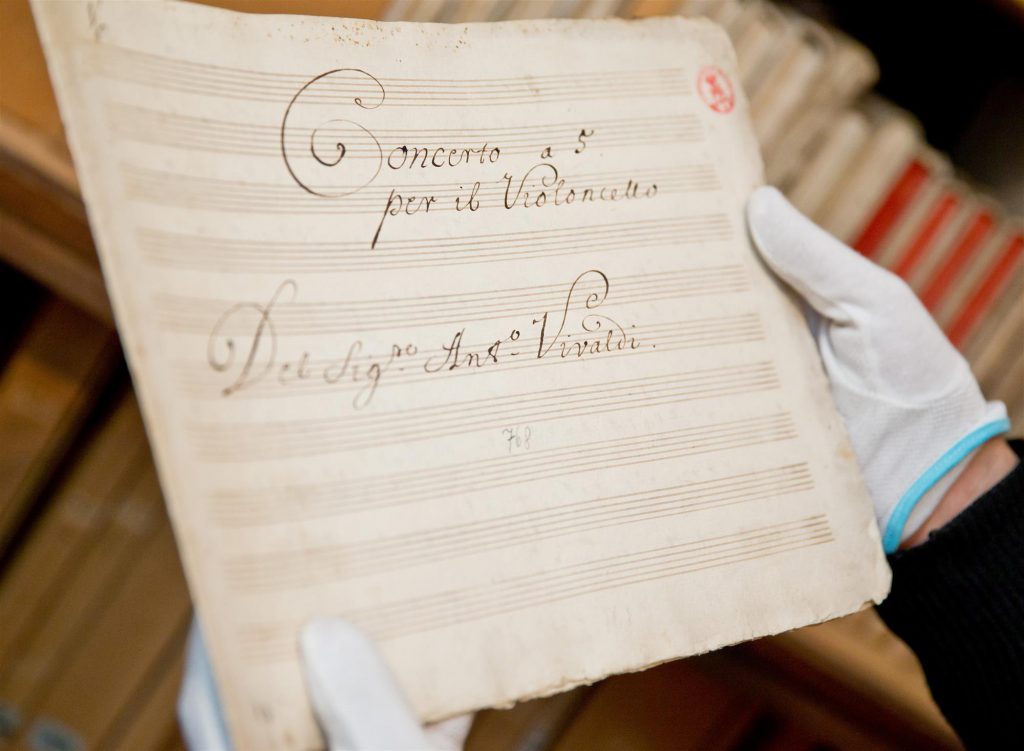 Concerto a 5
per il Violoncello
Del Sig.ro Ant.o Vivaldi.
768